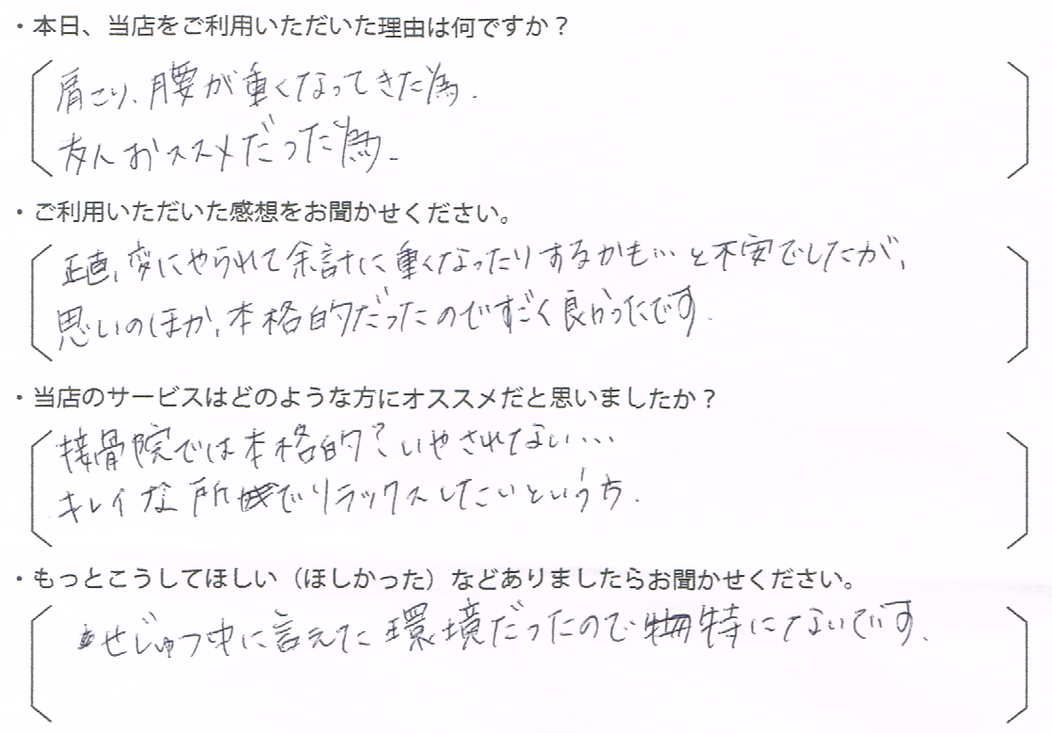 ・本日、当店をご利用いただいた理由は何ですか？
肩こり、腰が重くなってきた為.
友人おススメだった為.
・ご利用いただいた感想をお聞かせください。
正直、変にやられて余計に重くなったりするかも…と不安でしたが、
思いのほか、本格的だったのですごく良かったです.
・当店のサービスはどのような方にオススメだと思いましたか？
接骨院では本格的？いやされない…
キレイな所でリラックスしたいという方.
・もっとこうしてほしい（ほしかった）などありましたらお聞かせください。
せじゅつ中に言えた環境だったので特にないです.